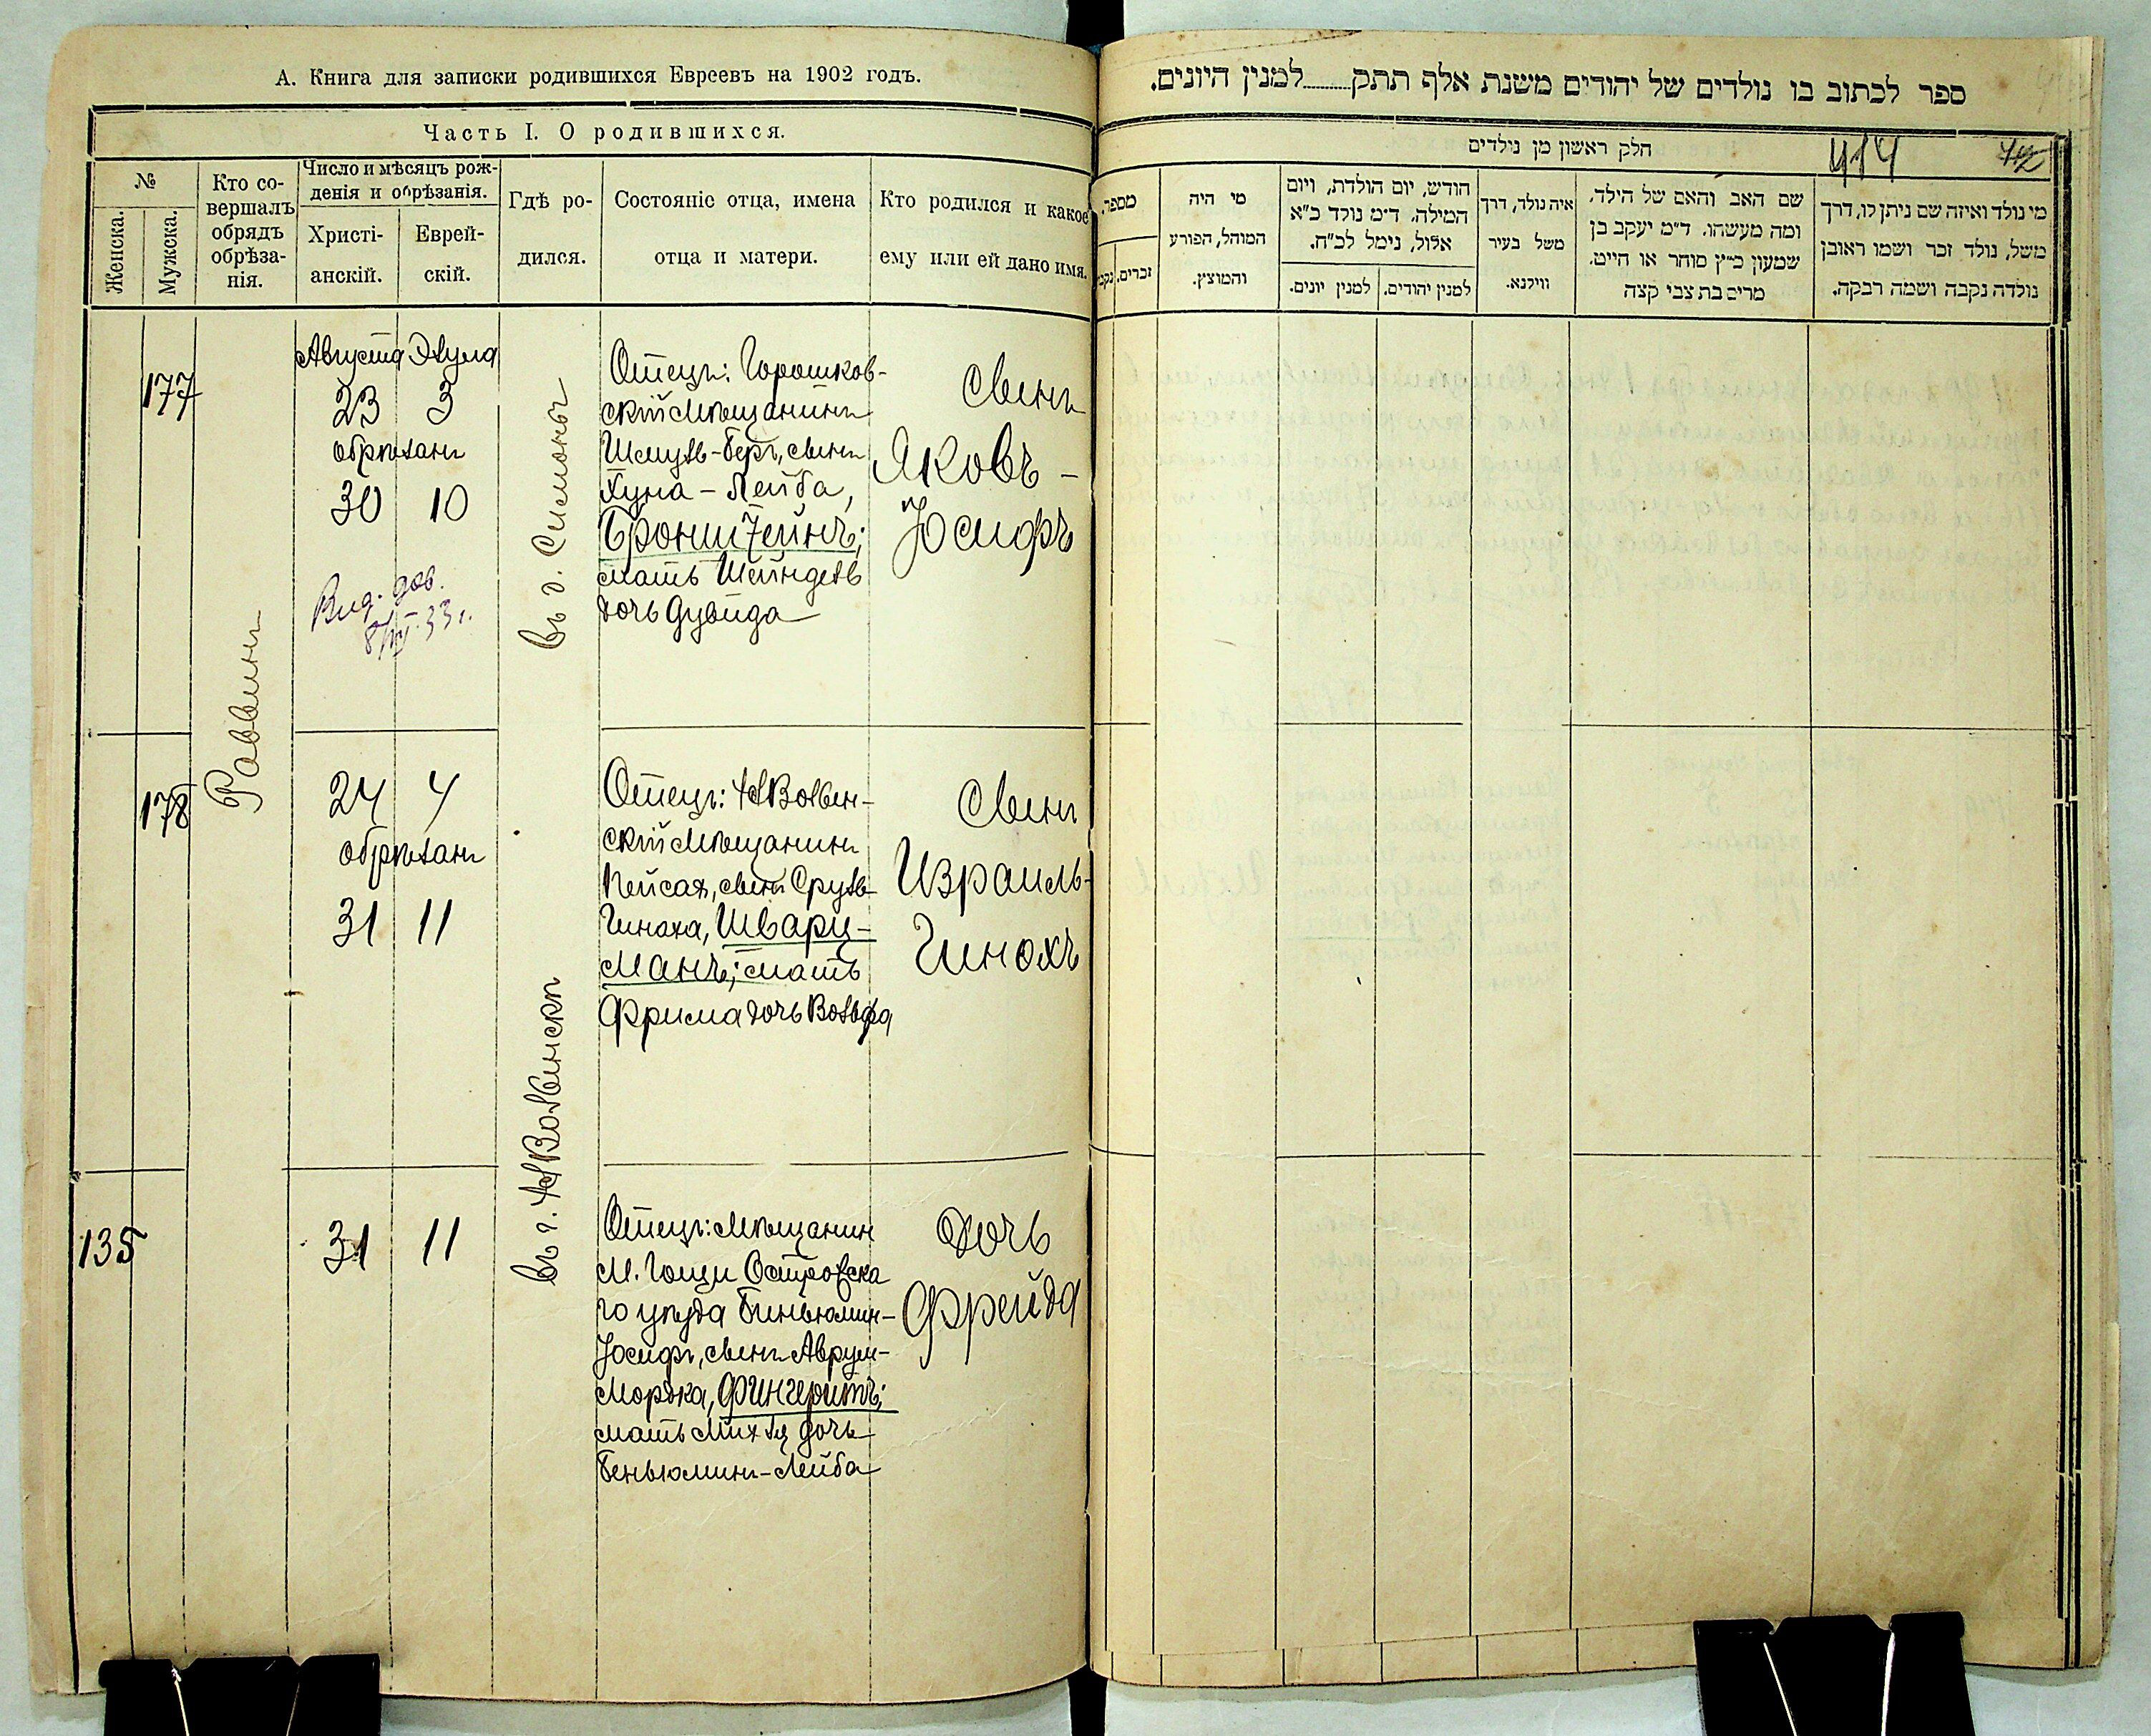 А. Книга для записки родившихся Евреевъ на 1902 годъ.
Часть I. О родившихся.
№
Женска.
Мужска.
Кто со-
вершалъ
обрядъ
обрѣза-
нія.
Число и мѣсяцъ рож-
денія и обрѣзанія.
Христі-
анскій.
Еврей-
скій.
Гдѣ ро-
дился.
Состояніе отца, имена
отца и матери.
Кто родился и какое
ему или ей дано имя.
177
Раввинъ
Августа Элула
23 3
обрѣзанъ
30 10
8/VI 33 г.
Отецъ: Горошков-
скій Мѣщанинъ
Шмуль-Беръ, сынъ
Хуна-Лейба,
Бронштейнъ;
мать Шейндель
дочь Дувида
Сынъ
Яковъ-
Іосифъ
178
24 4
обрѣзанъ
31 11
въ г. Н Волынскѣ
Отецъ: Н Волын-
скій Мѣщанинъ
Пейсах, сынъ Сруль-
Гиноха, Шварц-
манъ; мать
Фрима дочь Вольфа
Сынъ
Израиль-
Гинохъ
135
31 11
Отецъ: Мѣщанин
М. Гощи Острожска
го уѣзда Биньюмин-
Іосифъ, сынъ Аврум-
Мордка, Фингеритъ;
мать Михля дочь
Беньюминъ-Лейба
Дочь
Фрейда
ספר לכתוב בו נולדים של יהודים משנת אלף תתק........למנין היונים.
חלק ראשון מן נילדים
414
72
מספר.
זכרים.
מי היה
המוהל, הפורע
והמוצץ.
חודש, יום הולדת, ויום
המילה. ד״מ נולד כ״א
אלול, נימל לכ״ח.
למנין יהודים.
למנין יונים.
איה נולד, דרך
משל בעיר
ווילנא.
שם האב והאם של הילד.
ומה מעשהו. ד״מ יעקב בן
שמעון כ״ץ סוחר או חייט.
מרים בת צבי קצה
מי נולד ואיזה שם ניתן לו, דרך
משל, נולד זכר ושמו ראובן
נולדה נקבה ושמה רבקה.